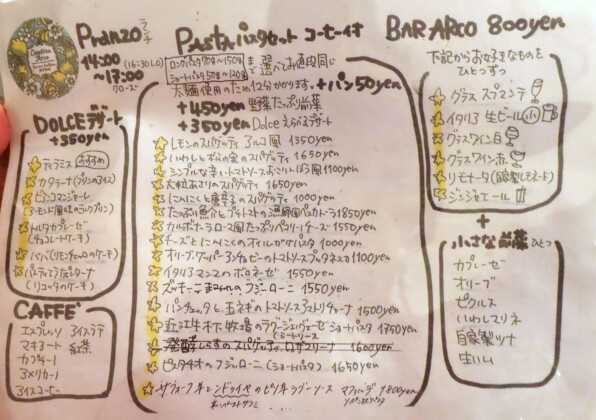 Pranzo ランチ
14:00 (16:30LO)
～17:00
クローズ
DOLCE デザート
+350yen
ティラミス おすすめ
カタラーナ (プリンのアイス)
ビアンコマンジャーレ
(アーモンド風味のミルクプリン)
トルタカプレーゼ
(チョコレートケーキ)
ババ (リモンチェッロのケーキ)
(リコッタのケーキ)
CAFFE'
エスプレッソ アイスラテ
マキヤート 紅茶
カプチーノ
アメリカーノ
アイスコーヒー
PASTA パスタセット コーヒー付
ロングパスタ90g～150g
ショートパスタ 50g～120g
まで選べてお値段同じ
太麺使用のため12分かかります。
+パン50yen
+450yen 野菜たっぷり前菜
+350yen Dolce えらべるデザート
レモンのスパゲッティ アマルフィ風 1350yen
いわしとからすみのスパゲッティ 1650yen
シンプルな辛いトマトソース 1100yen
大粒あさりのスパゲッティ 1650yen
にんにくと唐辛子のスパゲッティ 1000yen
たっぷり魚介とプチトマトの漁師風ペスカトーラ 1850yen
カルボナーラ ローマ風 たっぷりペコリーノチーズ 1550yen
チーズとにんにくのオイルがけパスタ 1000yen
オリーブ、ケッパー、アンチョビーのトマトソース プッタネスカ 1100yen
イタリアマンマのボロネーゼ 1550yen
ズッキーニ のフジローニ 1550yen
パンチェッタと玉ネギのトマトソース アマトリチャーナ 1500yen
近江牛 木下牧場のラグー ジェノヴェーゼ ショートパスタ 1750yen
発酵しらすのスパゲッティ ロザマリーナ 1600yen
ピスタチオのフジローニ (ショートパスタ) 1650yen
サフォーク羊とンドゥイヤのピリ辛ラグーソース マファルデ 1800yen
BAR ARCO 800yen
下記からお好きなものを
ひとつずつ
グラス スプマンテ
イタリア 生ビール 小
グラスワイン白
グラスワイン赤
リモナータ (自家製レモネード)
ジンジャエール
+
小さな前菜 ひとつ
カプレーゼ
オリーブ
ピクルス
いわしマリネ
自家製ツナ
生ハム